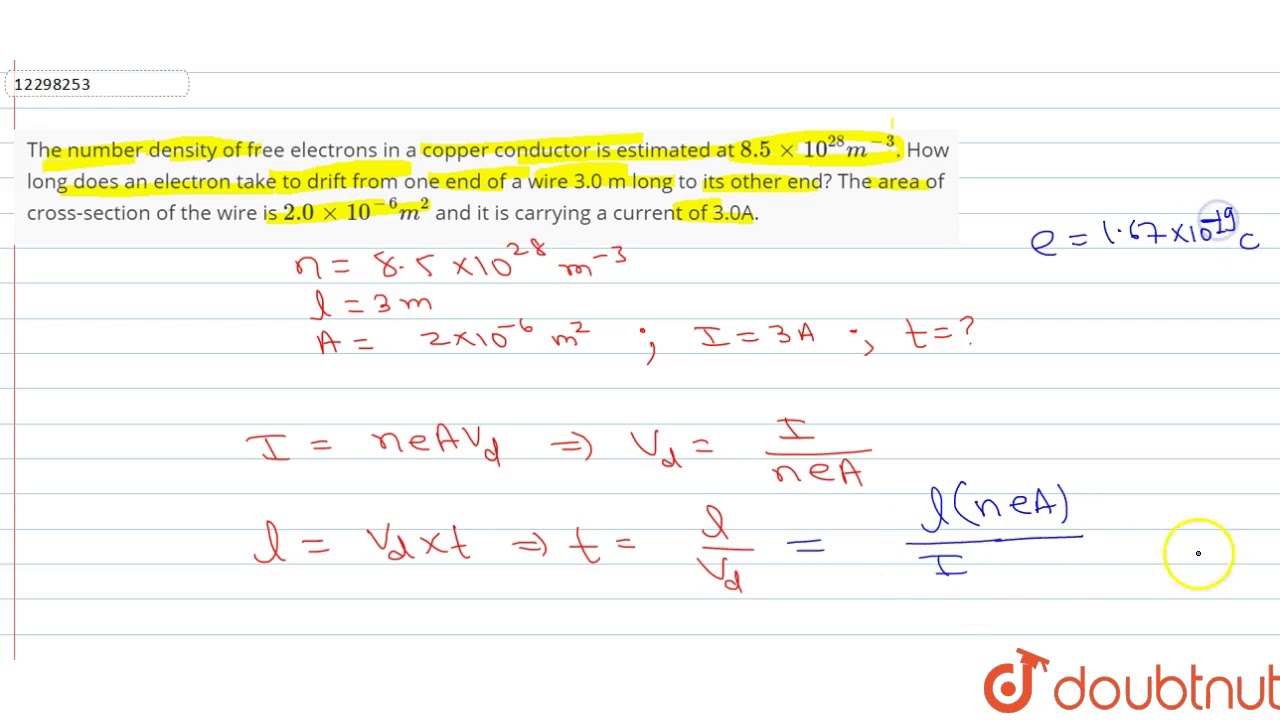 12298253
The number density of free electrons in a copper conductor is estimated at 8.5 × 10²⁸m⁻³. How
long does an electron take to drift from one end of a wire 3.0 m long to its other end? The area of
cross-section of the wire is 2.0 × 10⁻⁶m² and it is carrying a current of 3.0A.
e = 1.67×10⁻¹⁹ c
n = 8.5 ×10²⁸ m⁻³
l = 3 m
A = 2×10⁻⁶ m² ; I = 3A ; t = ?
I = neAVd ⇒ Vd = I/neA
l = Vd × t ⇒ t = l/Vd = l(neA)/I
doubtnut